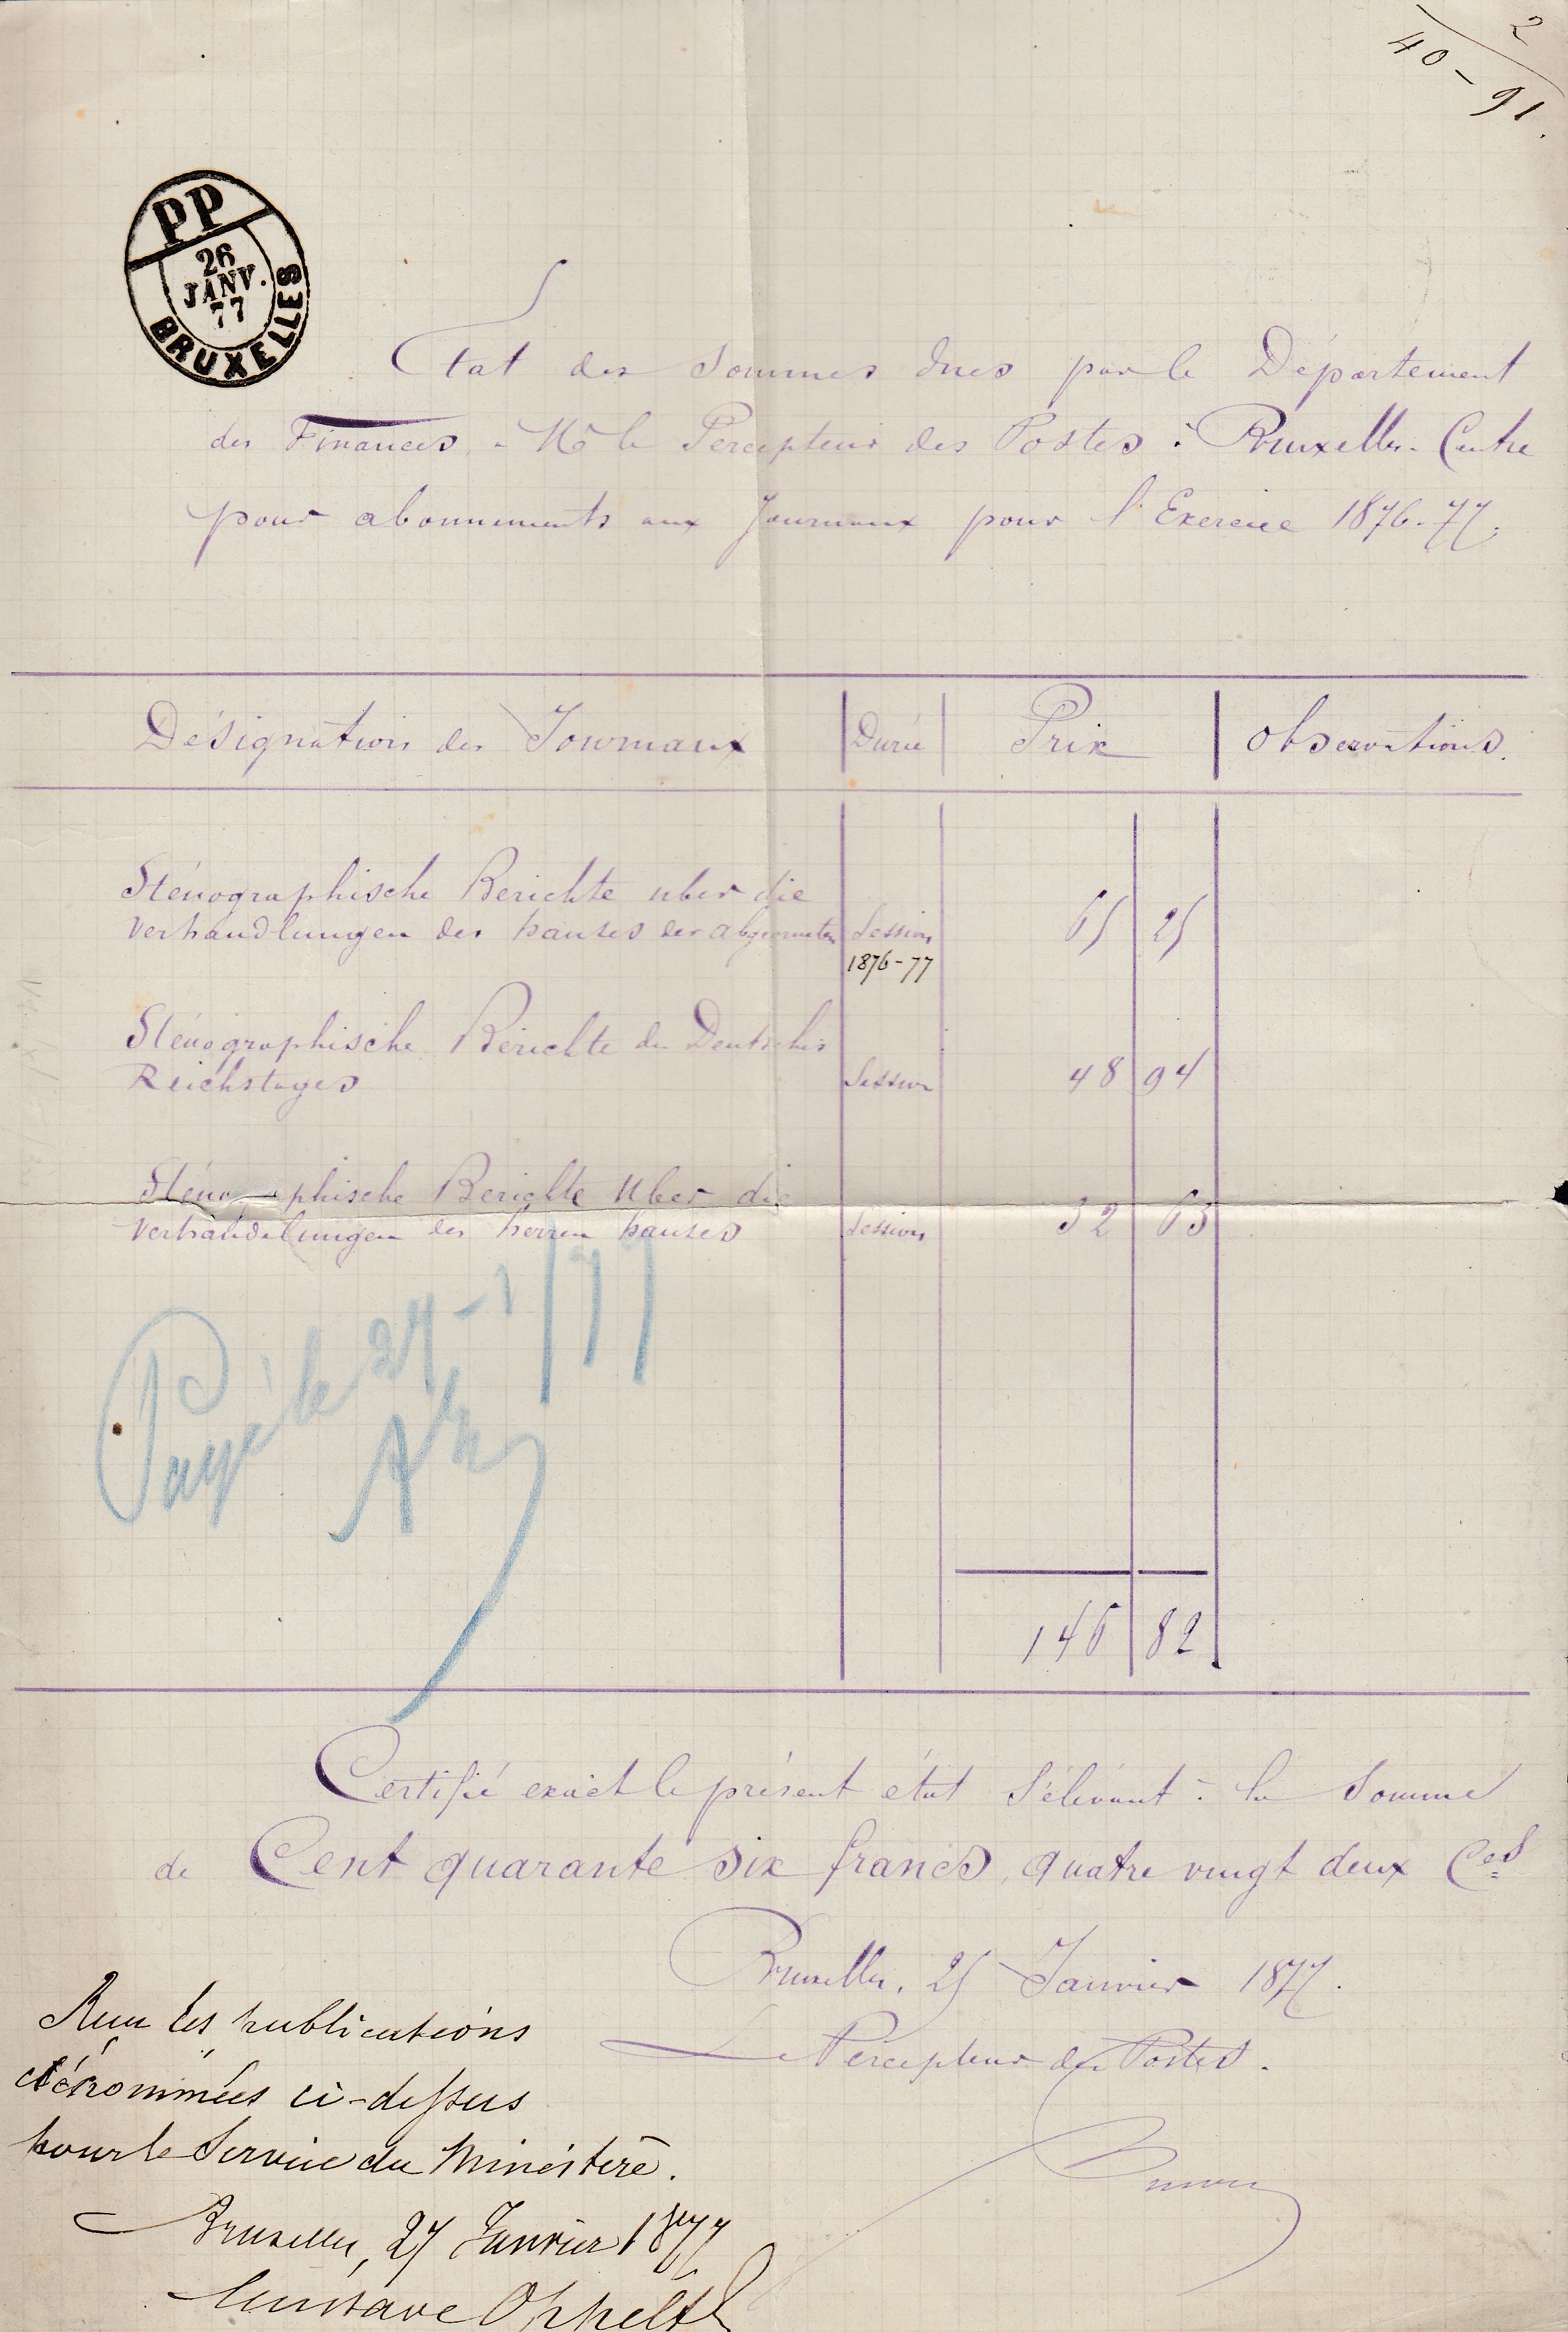 2
40-91.
PP
26
JANV.
77
BRUXELLES
Etat des Sommes dues par le Département
des Finances, à Mr le Percepteur des Postes à Bruxelles-Centre
pour abonnements aux Journaux pour l'Exercice 1876-77.
Désignation des Journaux Durée Prix Observations.
Sténographische Berichte uber die
Verhandlungen des hauses der abgeordneten Session 65 25
1876-77
Sténographische Berichte des Deutsches
Reichstages Session 48 94
Sténographische Berichte Uber die
Verhandelungen des herren hauses Session 32 63
Payé le 27-1/77
146 82
Certifié exact le présent état s'élevant à la Somme
de Cent quarante six francs, quatre vingt deux Ces
Bruxelles, 25 Janvier 1877.
Le Percepteur des Postes.
Reçu les publications
dénommées ci-dessus
pour le Service du Ministère.
Bruxelles, 27 Janvier 1877
Gustave Oppelt